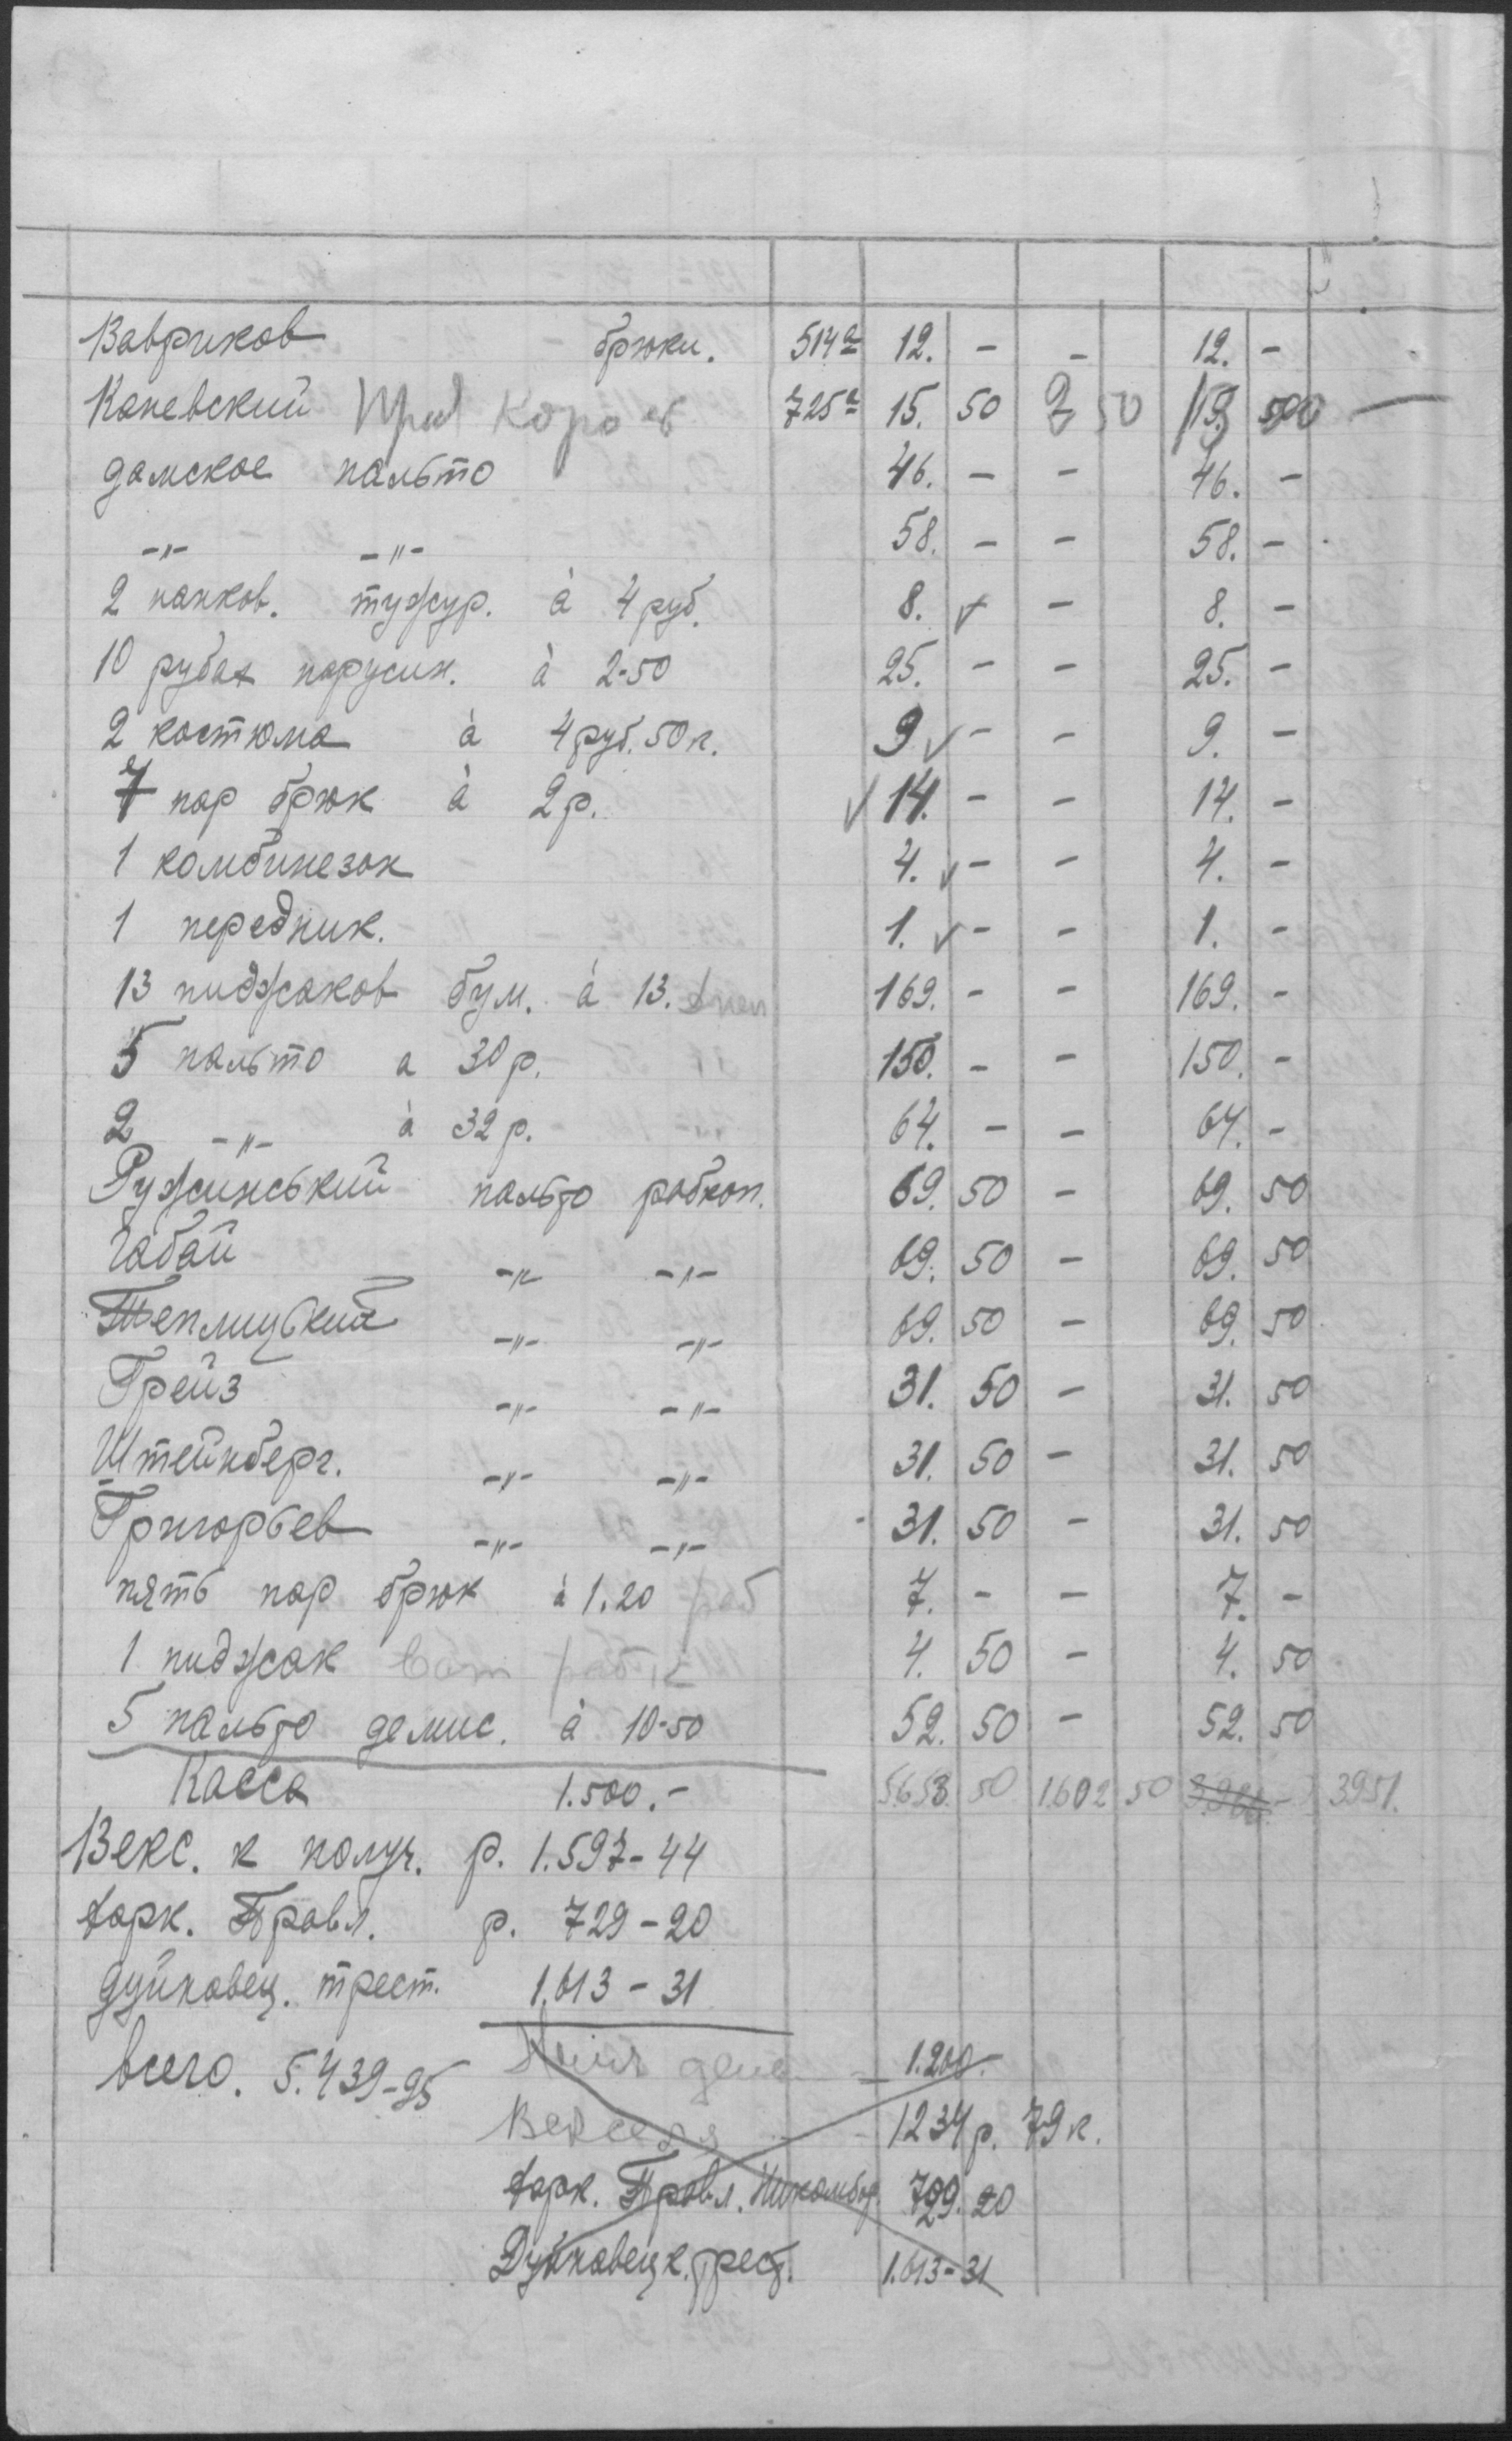 Вавриков брюки. 514а 12. - - 12. -
Каневский 725а 15. 50 2 50 13
дамское пальто 46. - - 46. -
-"- -"- 58. - - 58. -
2 нанков. тужур. à 4 руб. 8. - 8. -
10 рубах парусин. à 2-50 25. - - 25. -
2 костюма à 4 руб. 50 к. 9 - - 9. -
7 пар брюк à 2 р. 14. - - 14. -
1 комбинезон 4. - - 4. -
1 передник. 1. - - 1. -
13 пиджаков бум. à 13. 169. - - 169. -
5 пальто а 30 р. 150. - - 150. -
2 -"- à 32 р. 64. - - 64. -
Ружинський пальто рабкоп. 69. 50 - 69. 50
Габай -"- -"- 69. 50 - 69. 50
Теплицький -"- -"- 69. 50 - 69. 50
Грейз -"- -"- 31. 50 - 31. 50
Штейнберг. -"- -"- 31. 50 - 31. 50
Григорьев -"- -"- 31. 50 - 31. 50
пять пар брюк à 1.20 раб 7. - - 7. -
1 пиджак ват 4. 50 - 4. 50
5 пальто демис. à 10-50 52. 50 - 52. 50
Касса 1.500.- 5653. 50 1.602 50 3951.
Векс. к получ. р. 1.597-44
Харк. Правл. р. 729-20
Дунковец. трест. 1.613-31
всего. 5.439-95
1.200.-
Векселя 1234 р. 79 к.
Харк. Правл. 729. 20
Дунковецк. трест. 1.613-31